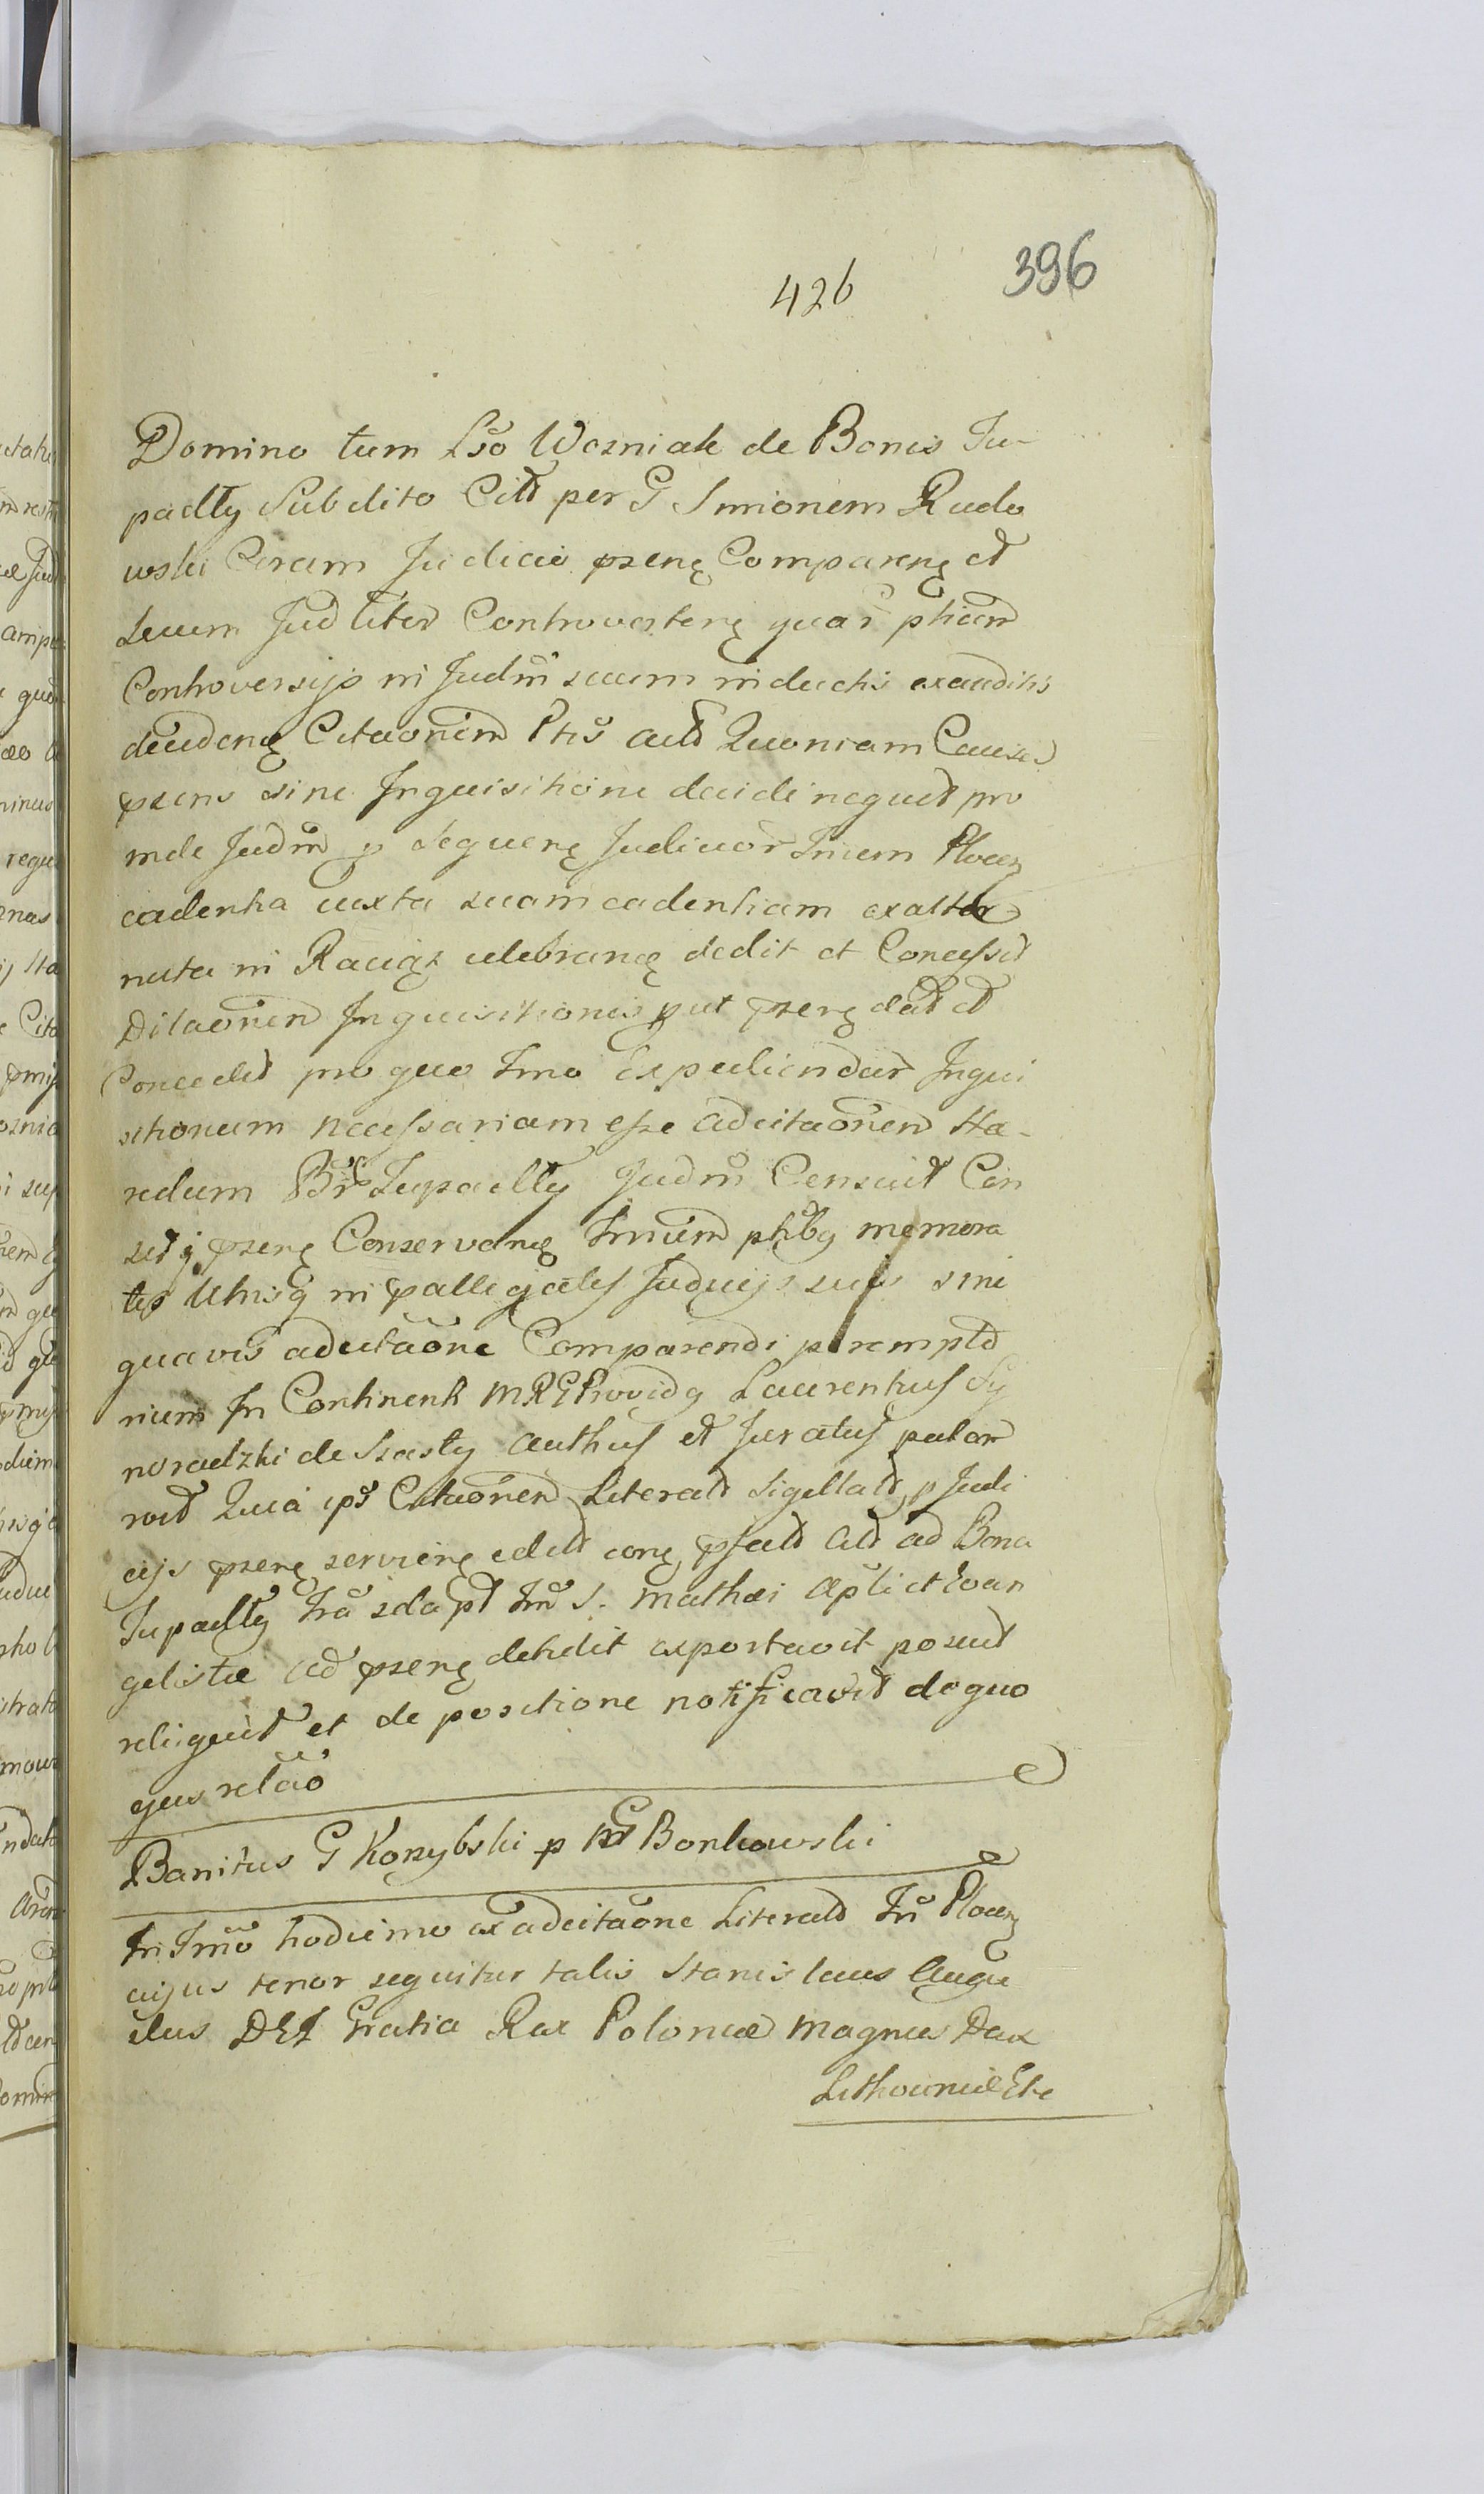 426
396
Domino tum Lso Wozniak de Bonis Ju-
padły Subdito Citt per G Simonem Rudo
wski Coram Judicio pzenę Comparenę et
Secum Judliter Controvertenę quar ptium
Controversijs in Judm suum inductis exauditis
decidenę Citaonem Ptis actt Quoniam Causa
pzens sine Inquisitione decidi nequit pro
inde Judm p Sequenę Judicior Tmum Plocen
cadentia iuxta suam cadentiam exalter
nata in Raciąż celebranę dedit et Concessit
Dilaonem Inquisitionis put pzenę dat et
Concedit pro quo Tmo Expediendar Inqui
sitionum necessariam esse adcitaonem Hæ-
redum Br Jupadły Judm Censuit Con
set q pzenę Conservanę Tmum ptibg memora
tis Utrisq in pallegatis Judicijs suis sine
quavis adcitaone Comparendi perempto
rium In Continenti MRG Providg Laurentius Sy
noradzki de Szasty authus et Juratus palam
rect Quia ips Citaonem Literatt Sigillatt p Judi
cijs pzenę servienę edett conę psatt Citt ad Bona
Jupadły fra 2da pt fm S. Mathæi Apli et Evan
gelistæ ad pzenę detulit exportavit posuit
reliquit et de positione notificavit de quo
ejus relao
Banitus G Konybski p MG Bonkowski
In Tmo hodierno ex adcitaone Literatt Tri Plocen
cujus tenor sequitur talis Stanislaus Augu
stus DEI Gratia Rex Poloniæ Magnus Dux
Lithvaniæ Etc